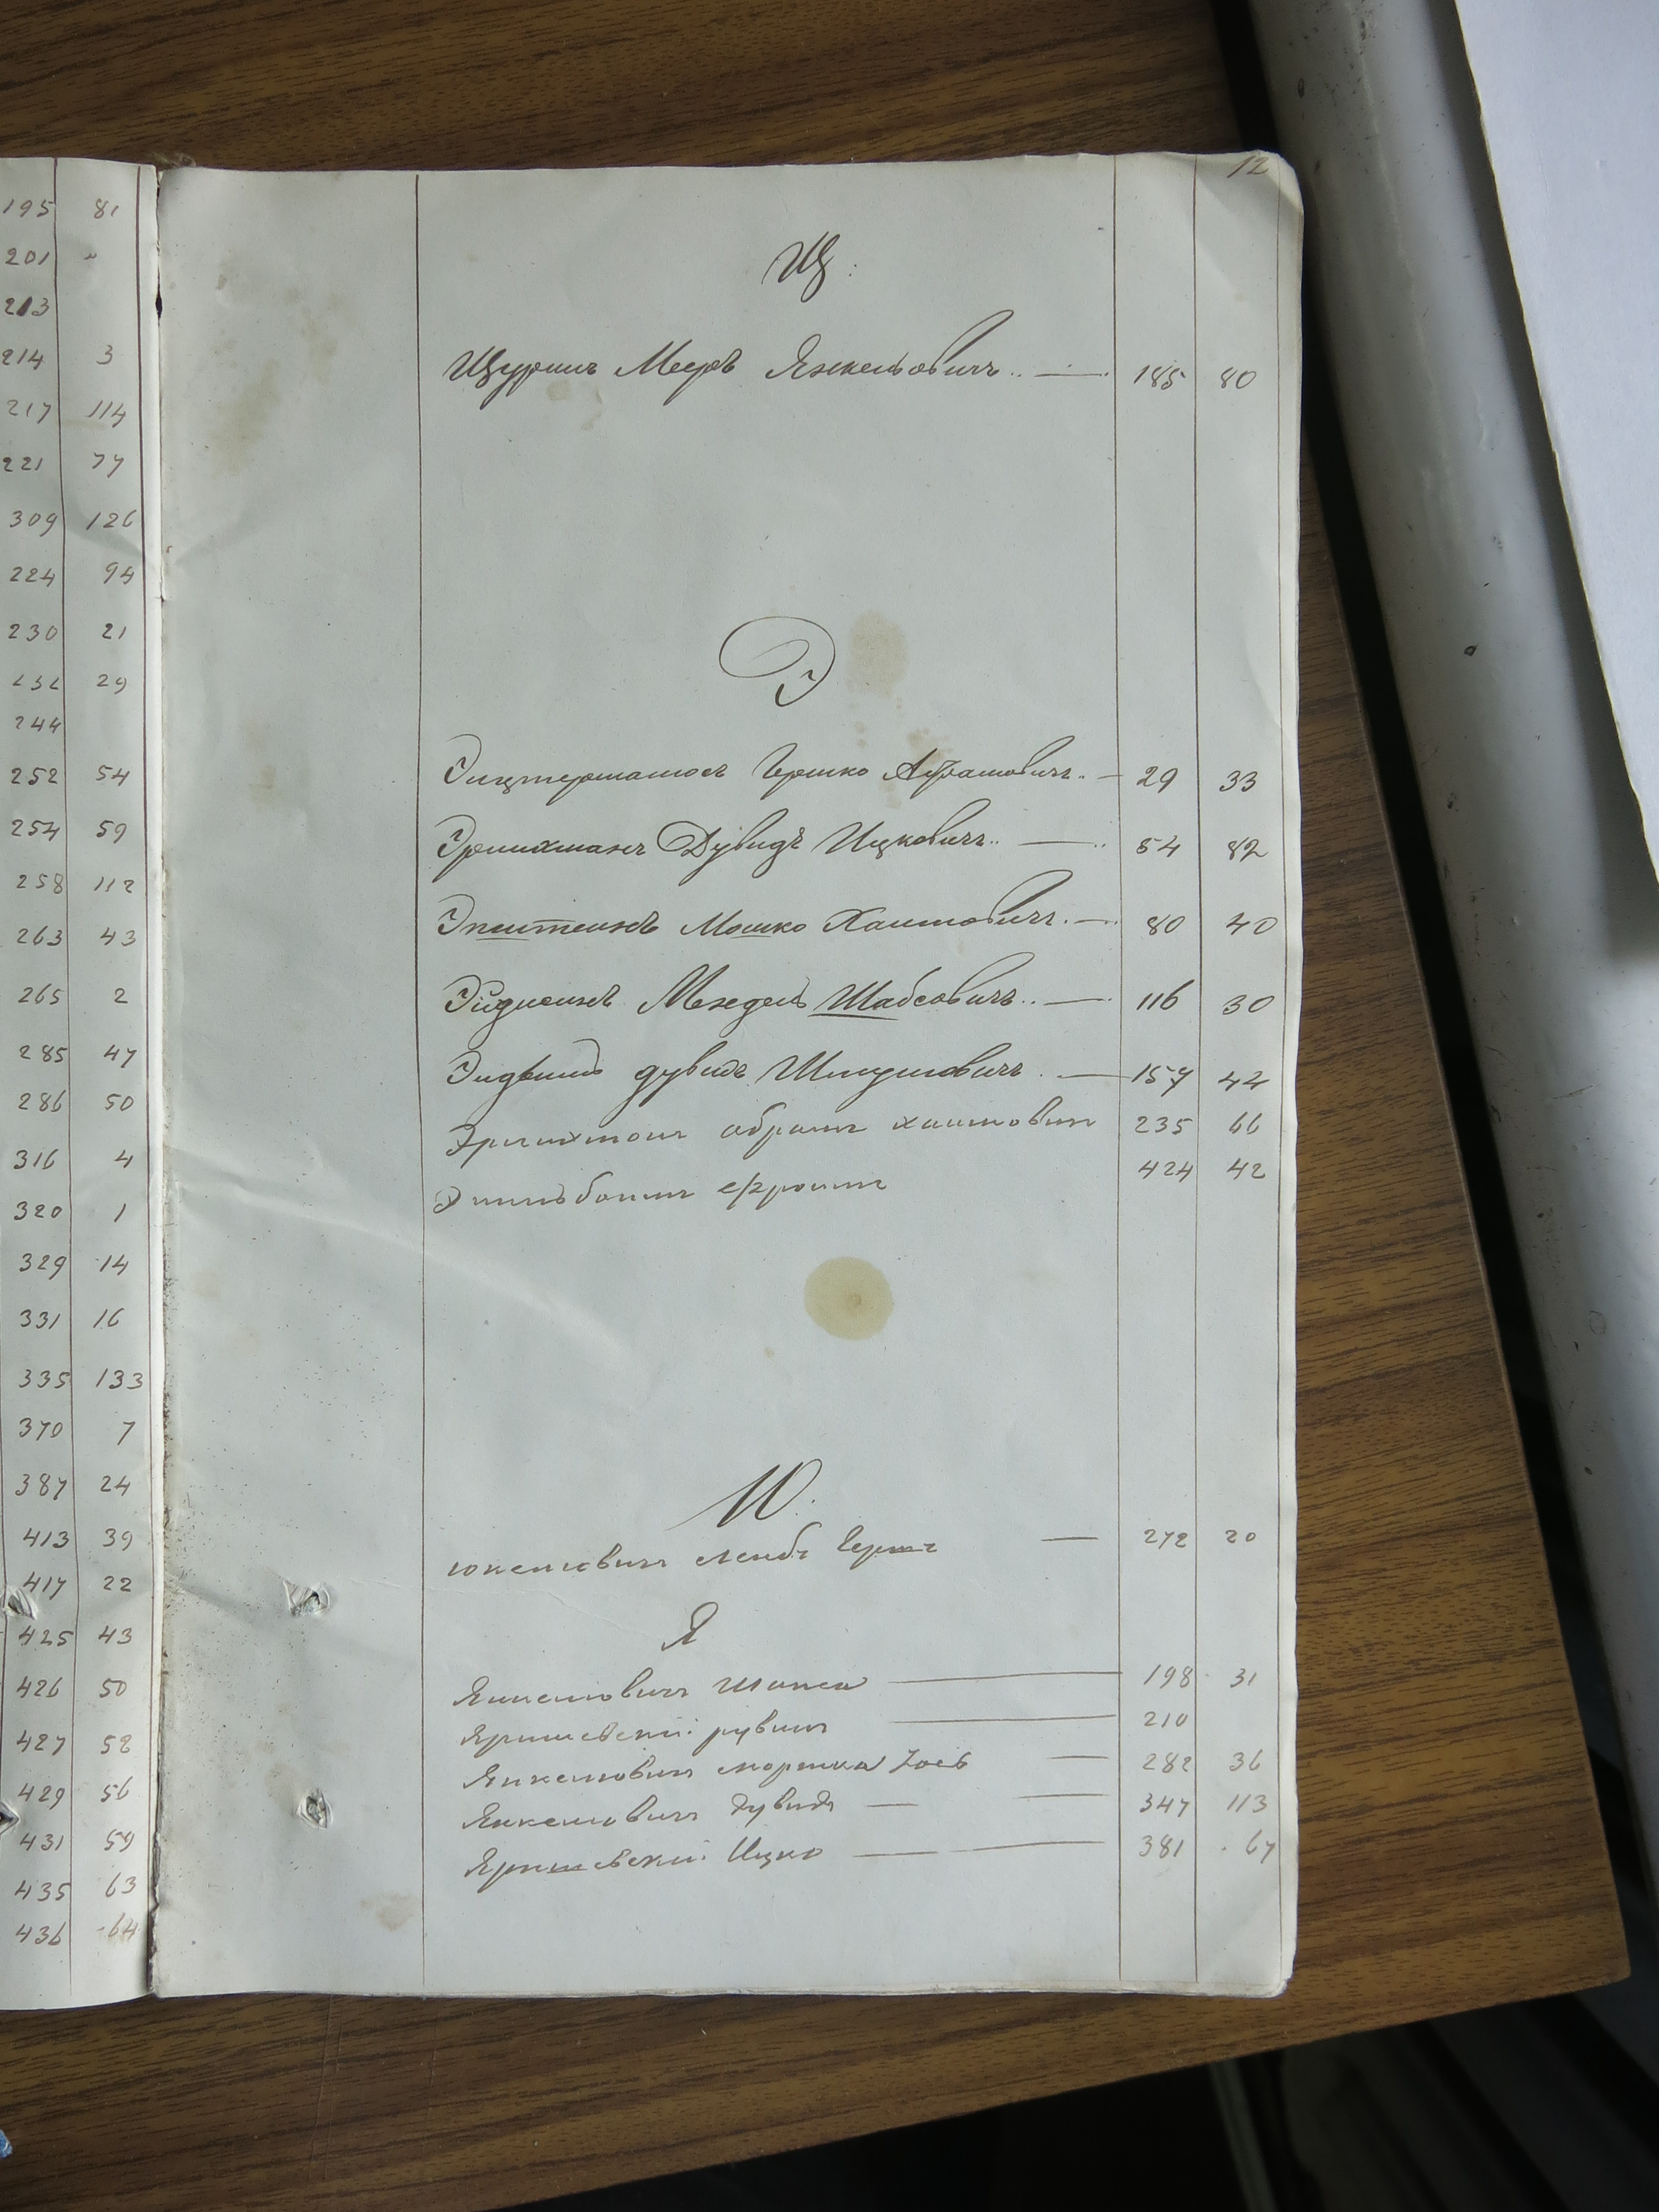 195 81
201 "
213
214 3
217 114
221 77
309 126
224 94
230 21
232 29
244
252 54
254 59
258 112
263 43
265 2
285 47
286 50
316 4
320 1
329 14
331 16
335 133
370 7
387 24
413 39
417 22
425 43
426 50
427 52
429 56
431 59
435 63
436 64
12
Щ.
Щуринъ Мееръ Янкельовичъ 185 80
Э
Гершко Абрамовичъ 29 33
Эрлихманъ Дувидъ Ицковичъ 54 82
Эпштейнъ Мошко Хаимовичъ 80 40
Мендель Шабсовичъ 116 30
дувидъ Шмулиовичъ 157 42
Эрлихманъ абрамъ хаимовичъ 235 66
ефроимъ 424 42
Ю.
юкелиовичъ лейбъ Гершъ 272 20
Я
Янкелиовичъ Шапса 198 31
Яришевский рувинъ 210
Янкелиовичъ мортка Иосъ 282 36
Янкелиовичъ Дувидъ 347 113
Яришевский Ицко 381 67